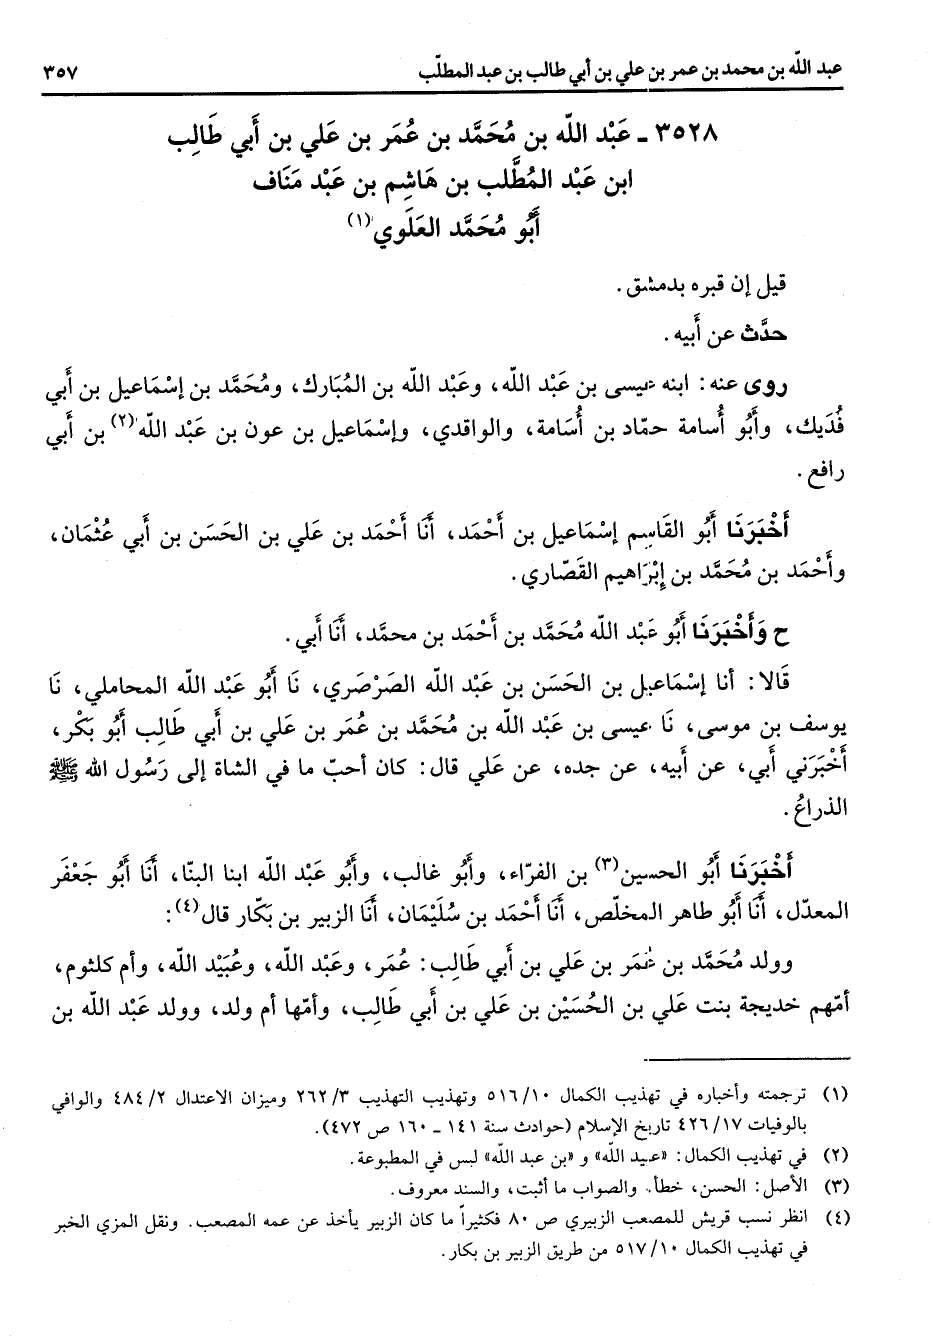 عبد الله بن محمد بن عمر بن علي بن أبي طالب بن عبد المطلّب ٣٥٧
٣٥٢٨ ـ عَبْد الله بن مُحَمَّد بن عُمَر بن عَلي بن أَبي طَالِب
ابن عَبْد المُطَّلب بن هَاشِم بن عَبْد مَنَاف
أَبُو مُحَمَّد العَلَوي(١)
قيل إن قبره بدمشق.
حدَّث عن أَبيه.
روى عنه: ابنه عيسى بن عَبْد الله، وعَبْد الله بن المُبَارك، ومُحَمَّد بن إسْمَاعيل بن أَبي
فُدَيك، وأَبُو أُسامة حمّاد بن أُسَامة، والواقدي، وإسْمَاعيل بن عون بن عَبْد الله(٢) بن أَبي
رافع.
أَخْبَرَنَا أَبُو القَاسِم إسْمَاعيل بن أَحْمَد، أَنَا أَحْمَد بن عَلي بن الحَسَن بن أَبي عُثْمَان،
وأَحْمَد بن مُحَمَّد بن إبْرَاهيم القَصّاري.
ح وَأَخْبَرَنَا أَبُو عَبْد الله مُحَمَّد بن أَحْمَد بن محمَّد، أَنَا أَبي.
قَالا: أنا إسْمَاعيل بن الحَسَن بن عَبْد الله الصَرْصَري، نَا أَبُو عَبْد الله المحاملي، نَا
يوسف بن موسى، نَا عيسى بن عَبْد الله بن مُحَمَّد بن عُمَر بن عَلي بن أَبي طَالِب أَبُو بَكْر،
أَخْبَرَني أَبي، عن أَبيه، عن جده، عن عَلي قال: كان أحبّ ما في الشاة إلى رَسُول الله ﷺ
الذراعُ.
أَخْبَرَنَا أَبُو الحسين(٣) بن الفرّاء، وأَبُو غالب، وأَبُو عَبْد الله ابنا البنّا، أَنَا أَبُو جَعْفَر
المعدّل، أَنَا أَبُو طاهر المخلّص، أَنَا أَحْمَد بن سُلَيْمَان، أَنَا الزبير بن بَكّار قال(٤):
وولد مُحَمَّد بن عُمَر بن عَلي بن أَبي طَالِب: عُمَر، وعَبْد الله، وعُبَيْد الله، وأم كلثوم،
أمّهم خديجة بنت عَلي بن الحُسَيْن بن عَلي بن أَبي طَالِب، وأمّها أم ولد، وولد عَبْد الله بن
(١) ترجمته وأخباره في تهذيب الكمال ١٠/ ٥١٦ وتهذيب التهذيب ٣/ ٢٦٢ وميزان الاعتدال ٢/ ٤٨٤ والوافي
بالوفيات ١٧/ ٤٢٦ تاريخ الإسلام (حوادث سنة ١٤١ ـ ١٦٠ ص ٤٧٢).
(٢) في تهذيب الكمال: «عبيد الله» و «بن عبد الله» ليس في المطبوعة.
(٣) الأصل: الحسن، خطأ، والصواب ما أثبت، والسند معروف.
(٤) انظر نسب قريش للمصعب الزبيري ص ٨٠ فكثيراً ما كان الزبير يأخذ عن عمه المصعب. ونقل المزي الخبر
في تهذيب الكمال ١٠/ ٥١٧ من طريق الزبير بن بكار.